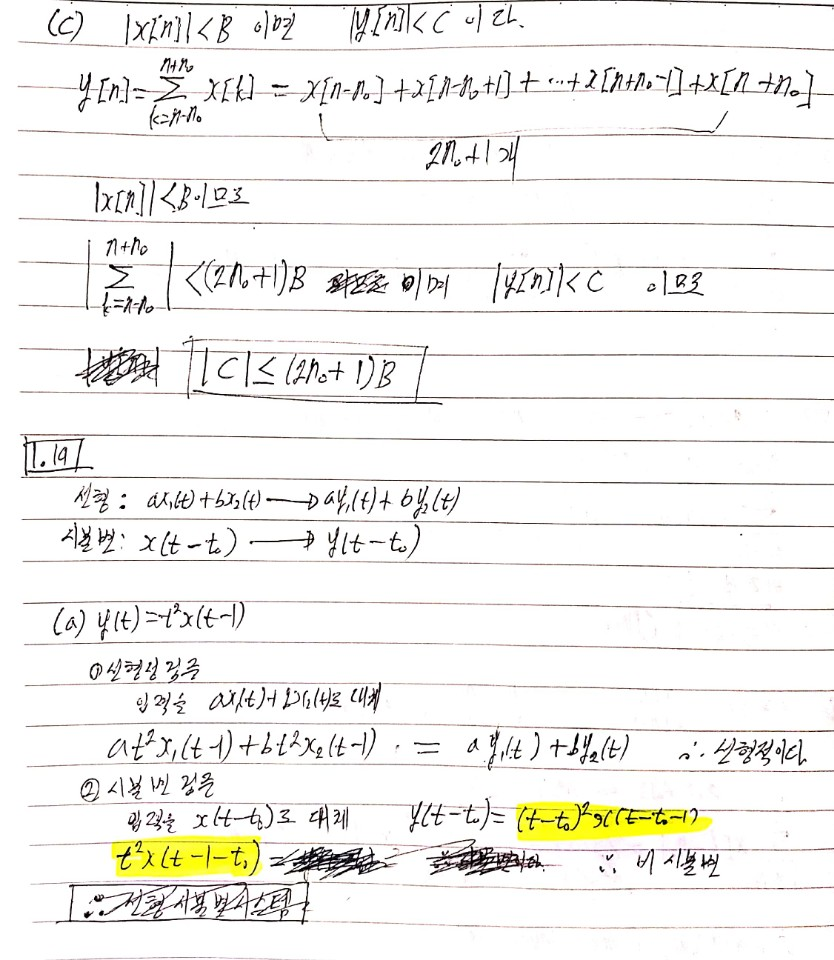 (c) |x[n]|<B 이면 |y[n]|<C 이다.
y[n]=∑_{k=n-n₀}^{n+n₀} x[k] = x[n-n₀]+x[n-n₀+1]+⋯+x[n+n₀-1]+x[n+n₀]
2n₀+1개
|x[n]|<B이므로
|∑_{k=n-n₀}^{n+n₀}| <(2n₀+1)B 이며 |y[n]|<C 이므로
|C|≤(2n₀+1)B
1.19
선형: ax₁(t)+bx₂(t)→ay₁(t)+by₂(t)
시불변: x(t-t₀)→y(t-t₀)
(a) y(t)=t²x(t-1)
①선형성 검증
입력을 ax₁(t)+bx₂(t)로 대체
at²x₁(t-1)+bt²x₂(t-1) = ay₁(t)+by₂(t) ∴ 선형적이다
②시불변 검증
입력을 x(t-t₀)로 대체 y(t-t₀)=(t-t₀)²x(t-t₀-1)
t²x(t-1-t₀) ∴ 비시불변
∴ 선형 시불변 시스템